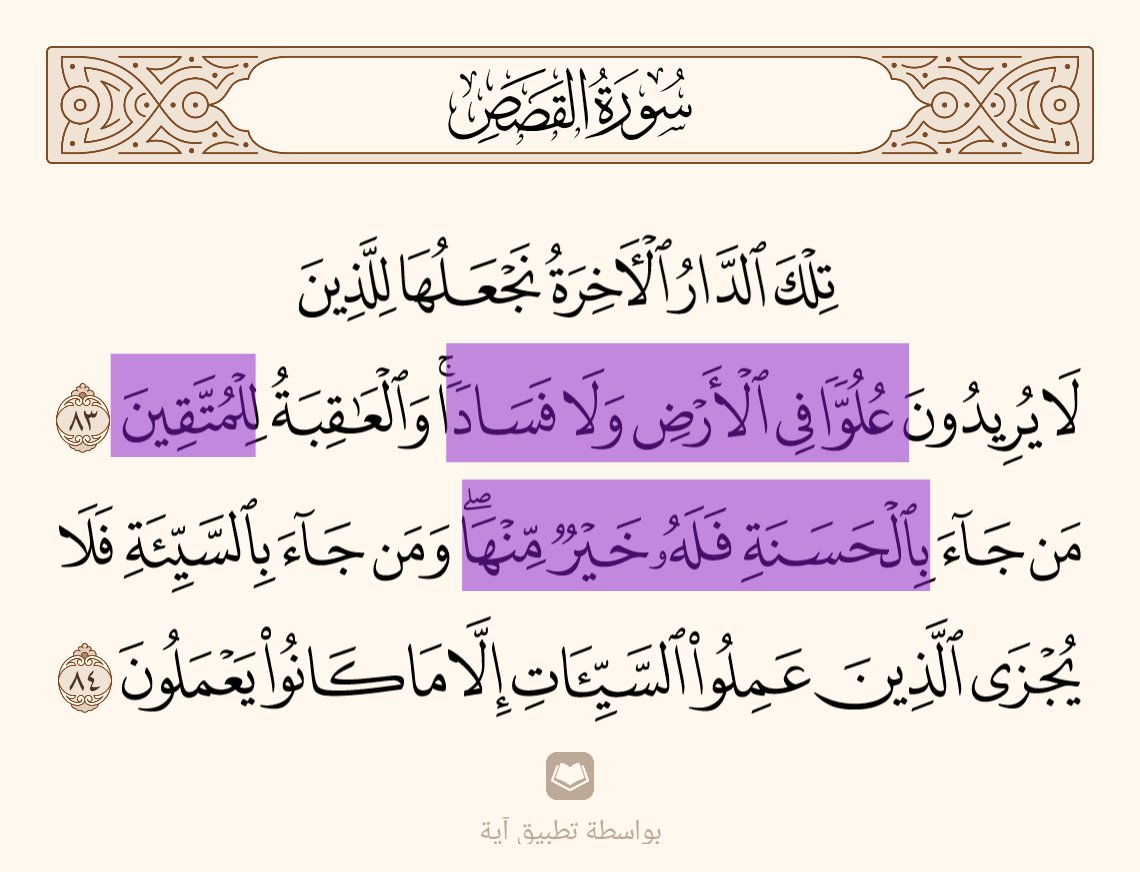 سُورَةُ القَصَصِ
تِلۡكَ ٱلدَّارُ ٱلۡأٓخِرَةُ نَجۡعَلُهَا لِلَّذِينَ
لَا يُرِيدُونَ عُلُوّٗا فِي ٱلۡأَرۡضِ وَلَا فَسَادٗاۚ وَٱلۡعَٰقِبَةُ لِلۡمُتَّقِينَ ٨٣
مَن جَآءَ بِٱلۡحَسَنَةِ فَلَهُۥ خَيۡرٞ مِّنۡهَاۖ وَمَن جَآءَ بِٱلسَّيِّئَةِ فَلَا
يُجۡزَى ٱلَّذِينَ عَمِلُواْ ٱلسَّيِّـَٔاتِ إِلَّا مَا كَانُواْ يَعۡمَلُونَ ٨٤
بواسطة تطبيق آية